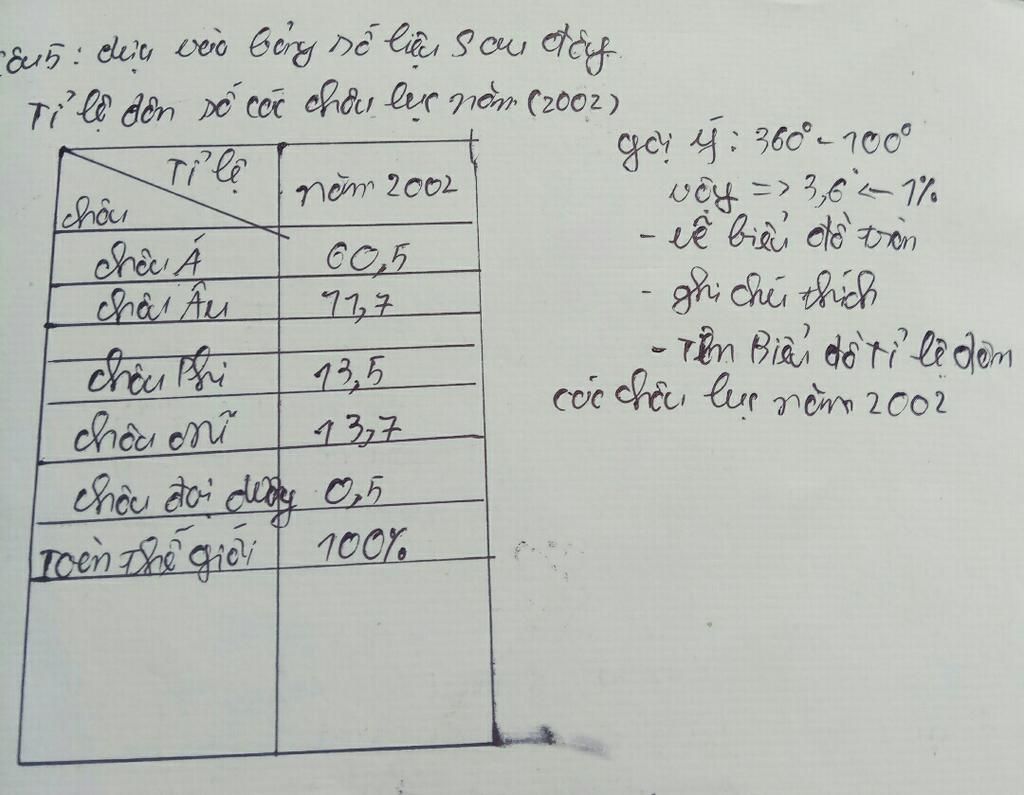 Câu 5: dựa vào bảng số liệu sau đây
Tỉ lệ dân số các châu lục năm (2002)
Tỉ lệ
châu
năm 2002
châu Á 60,5
châu Âu 11,7
châu Phi 13,5
châu mĩ 13,7
châu đại dương 0,5
Toàn thế giới 100%
gợi ý: 360° - 100°
vậy => 3,6° ← 1%
- vẽ biểu đồ tròn
- ghi chú thích
- Tên Biểu đồ Tỉ lệ dân
các châu lục năm 2002